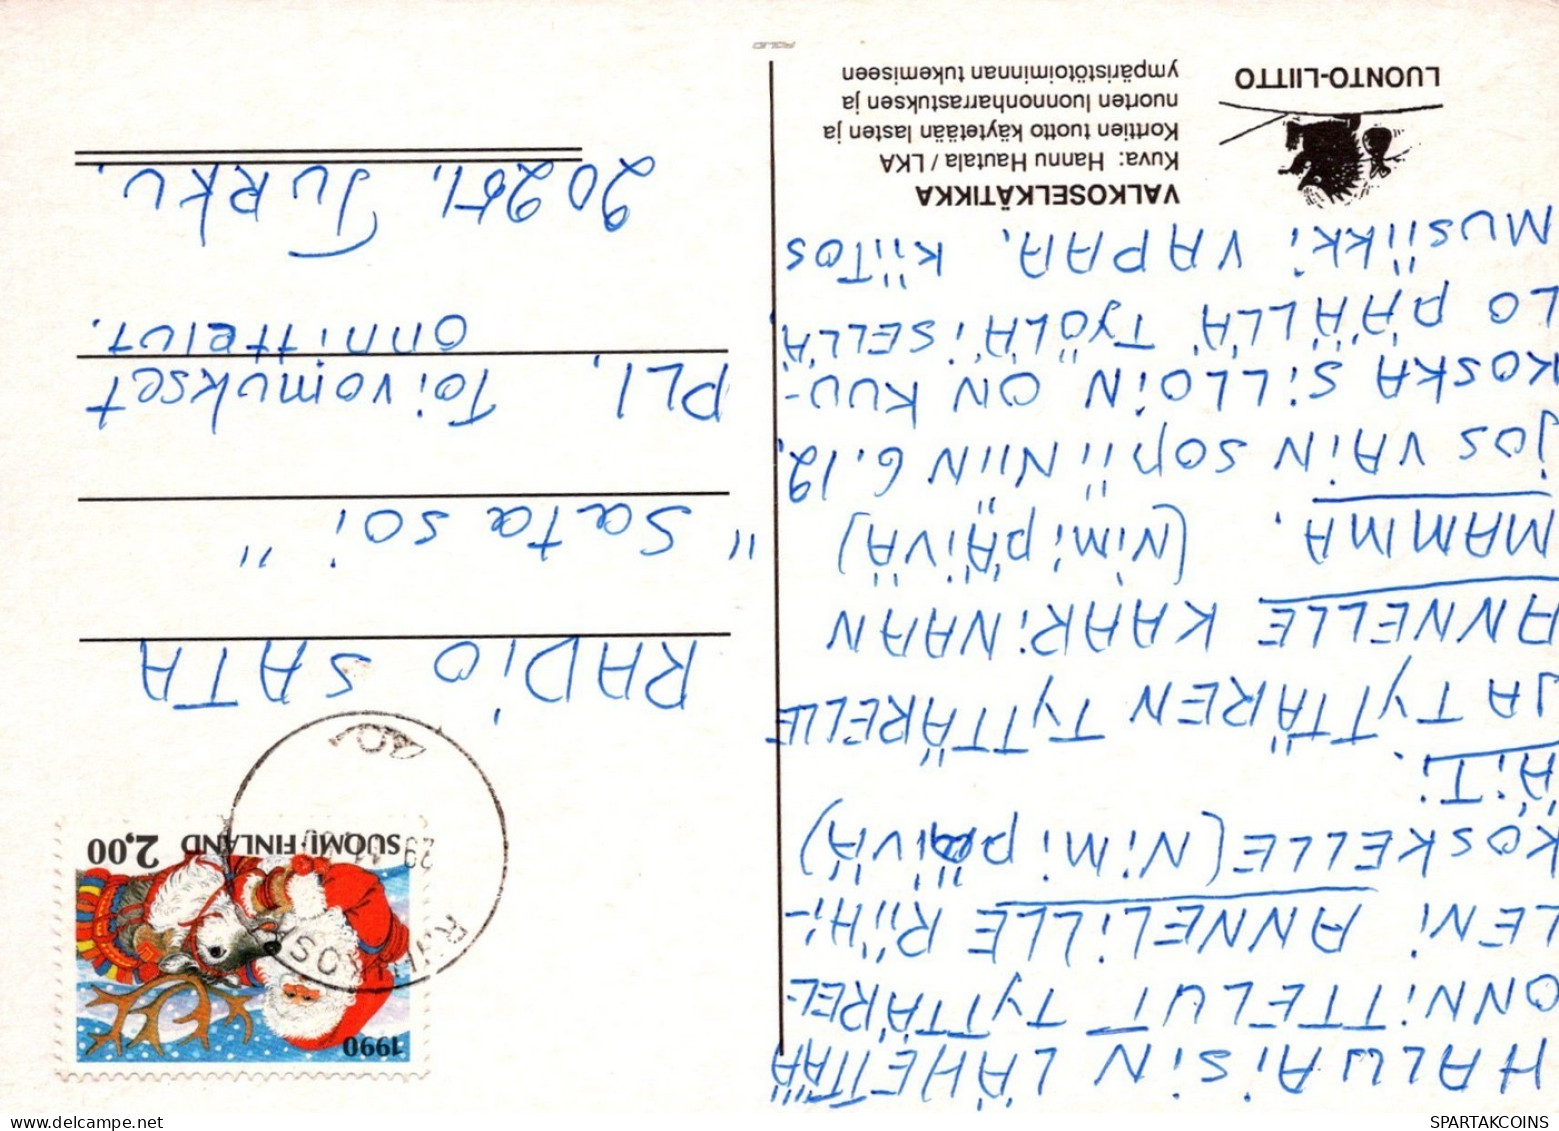 HALUAISIN LÄHETTÄÄ
ONNITTELUT TYTTÄREL-
LENI ANNELILLE RIIHI-
KOSKELLE (Nimipäivä)
ÄITI.
JA TYTTÄREN TYTTÄRELLE
ANNELLE KAARINAAN
MAMMA. (Nimipäivä)
jos VAIN SOPII NIIN 6.12.
KOSKA SILLOIN ON KUU-
LO PÄÄLLÄ TYÖLÄISELLÄ.
MUSIIKKI VAPAA. KIITOS
VALKOSELKÄTIKKA
Kuva: Hannu Hautala / LKA
Korttien tuotto käytetään lasten ja
nuorten luonnonharrastuksen ja
ympäristötoiminnan tukemiseen
LUONTO-LIITTO
1990
SUOMI·FINLAND 2,00
29.11.
RADIO SATA
"Satasoi"
PL1. Toivomukset
onnittelut.
20251. TURKU.
SPARTAKCOINS